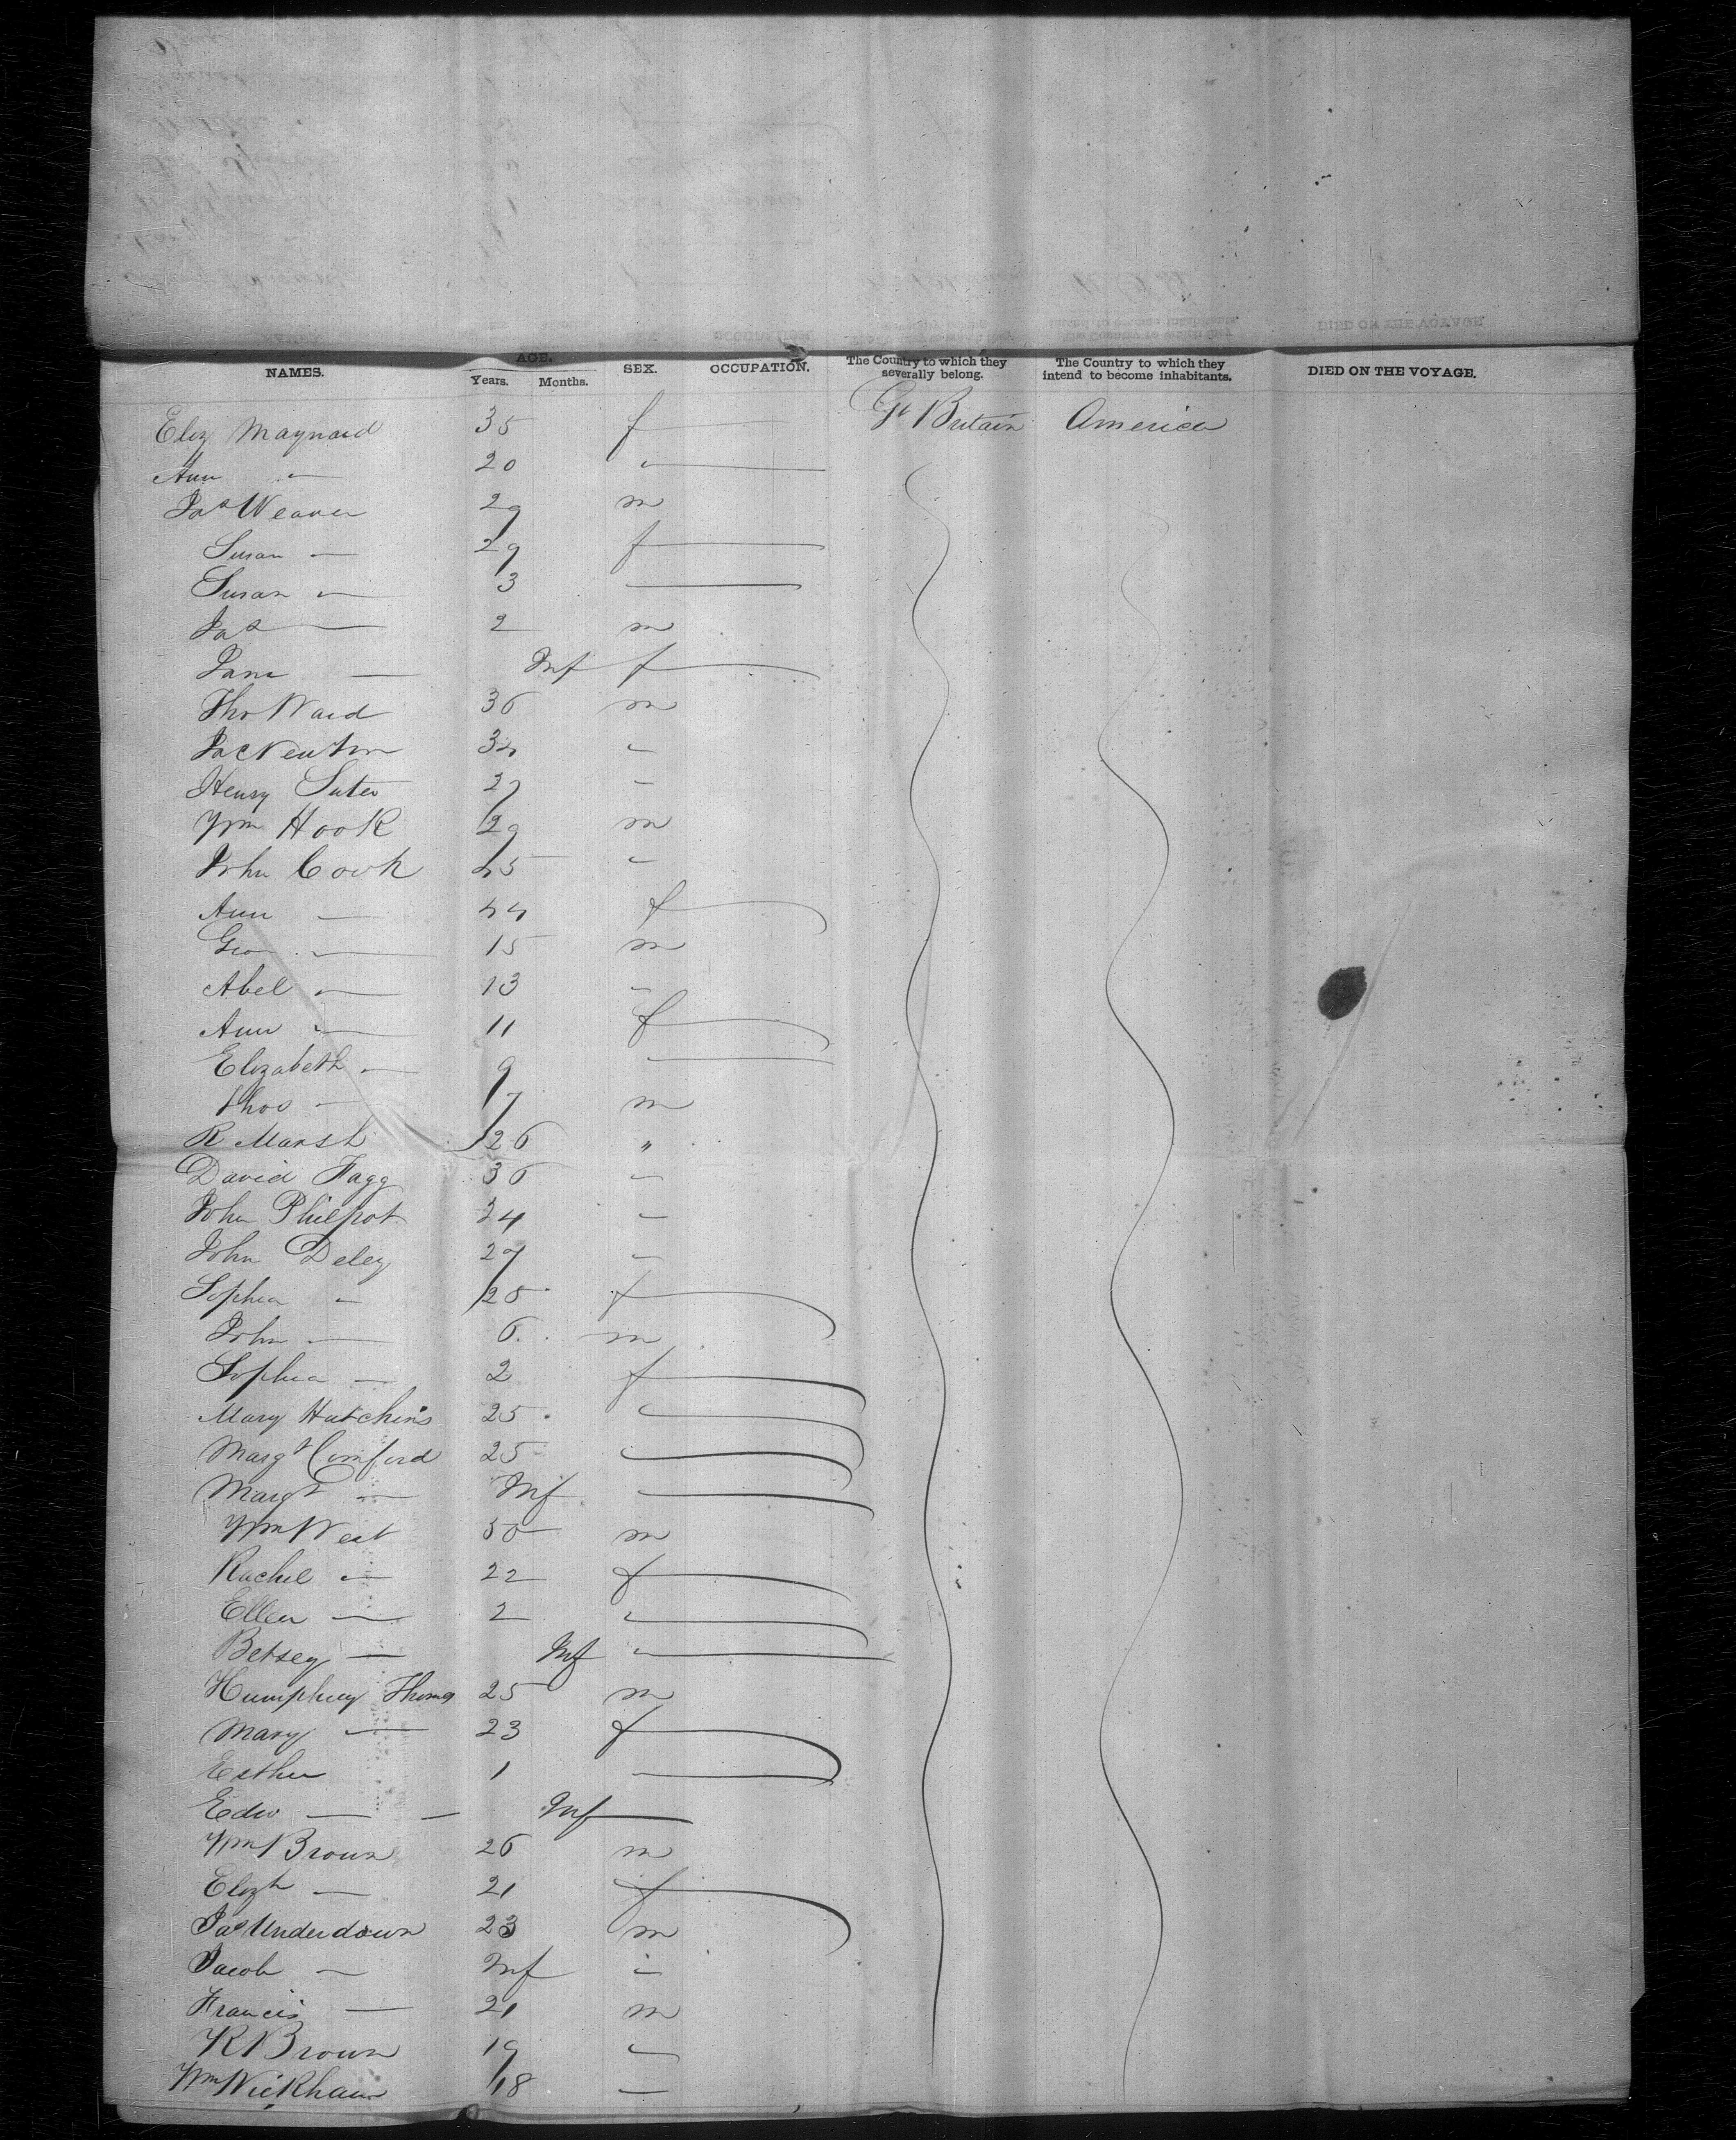 NAMES. AGE. Years. Months. SEX. OCCUPATION. The Country to which they severally belong. The Country to which they intend to become inhabitants. DIED ON THE VOYAGE.
Eliz Maynard 35 f Gt Britain America
Ann 〃 20 〃
Jas Weaver 29 m
Susan — 29 f
Susan — 3 —
Jas — 2 m
Jane — Inf f
Thos Ward 36 m
Jas Newton 34 〃
Henry Suter 27 〃
Wm Hook 29 m
John Cook 45 〃
Ann — 44 f
Geo — 15 m
Abel — 13 〃
Ann — 11 f
Elizabeth — 9 —
Thos — 7 m
R Marsh 26 〃
David Fagg 36 〃
John Philpot 24 〃
John Deley 27 〃
Sophia 〃 25 f
John — 6 m
Sophia — 2 f
Mary Hutchins 25 〃
Margt Comford 25 〃
Margt — Inf —
Wm West 50 m
Rachel — 22 f
Ellen — 2 〃
Betsey — Inf 〃
Humphrey Thomas 25 m
Mary — 23 f
Esther 1 —
Edw — — Inf —
Wm Brown 26 m
Elizth — 21 f
Jas Underdown 23 m
Jacob — Inf 〃
Francis — 21 m
R Brown 19 〃
Wm Wickham 18 —